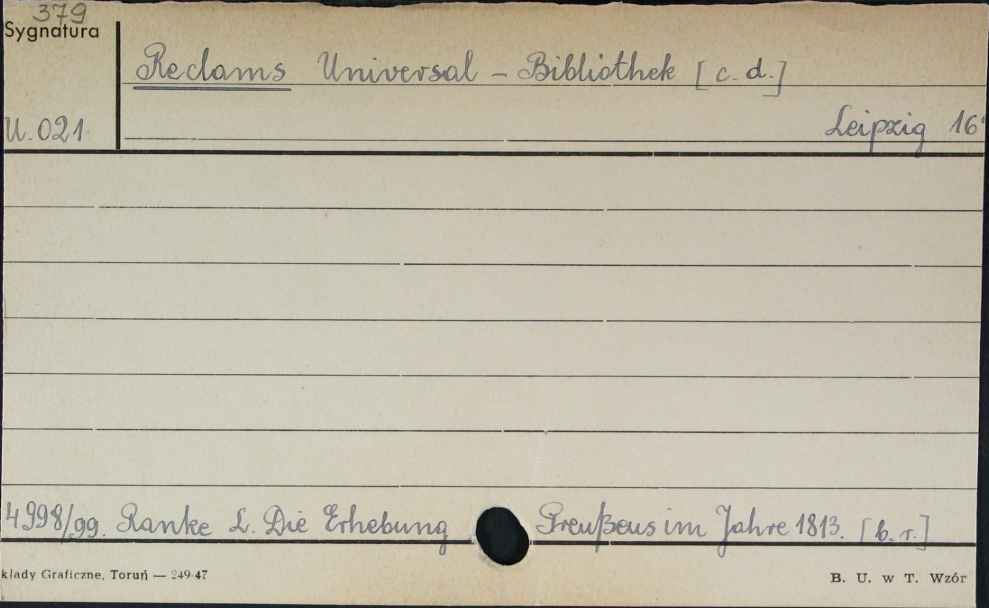 379
Sygnatura
Reclams Universal – Bibliothek [c. d.]
U. 021
Leipzig 16°
4998/99. Ranke L. Die Erhebung Preußens im Jahre 1813. [b. r.]
kłady Graficzne, Toruń — 249-47
B. U. w T. Wzór